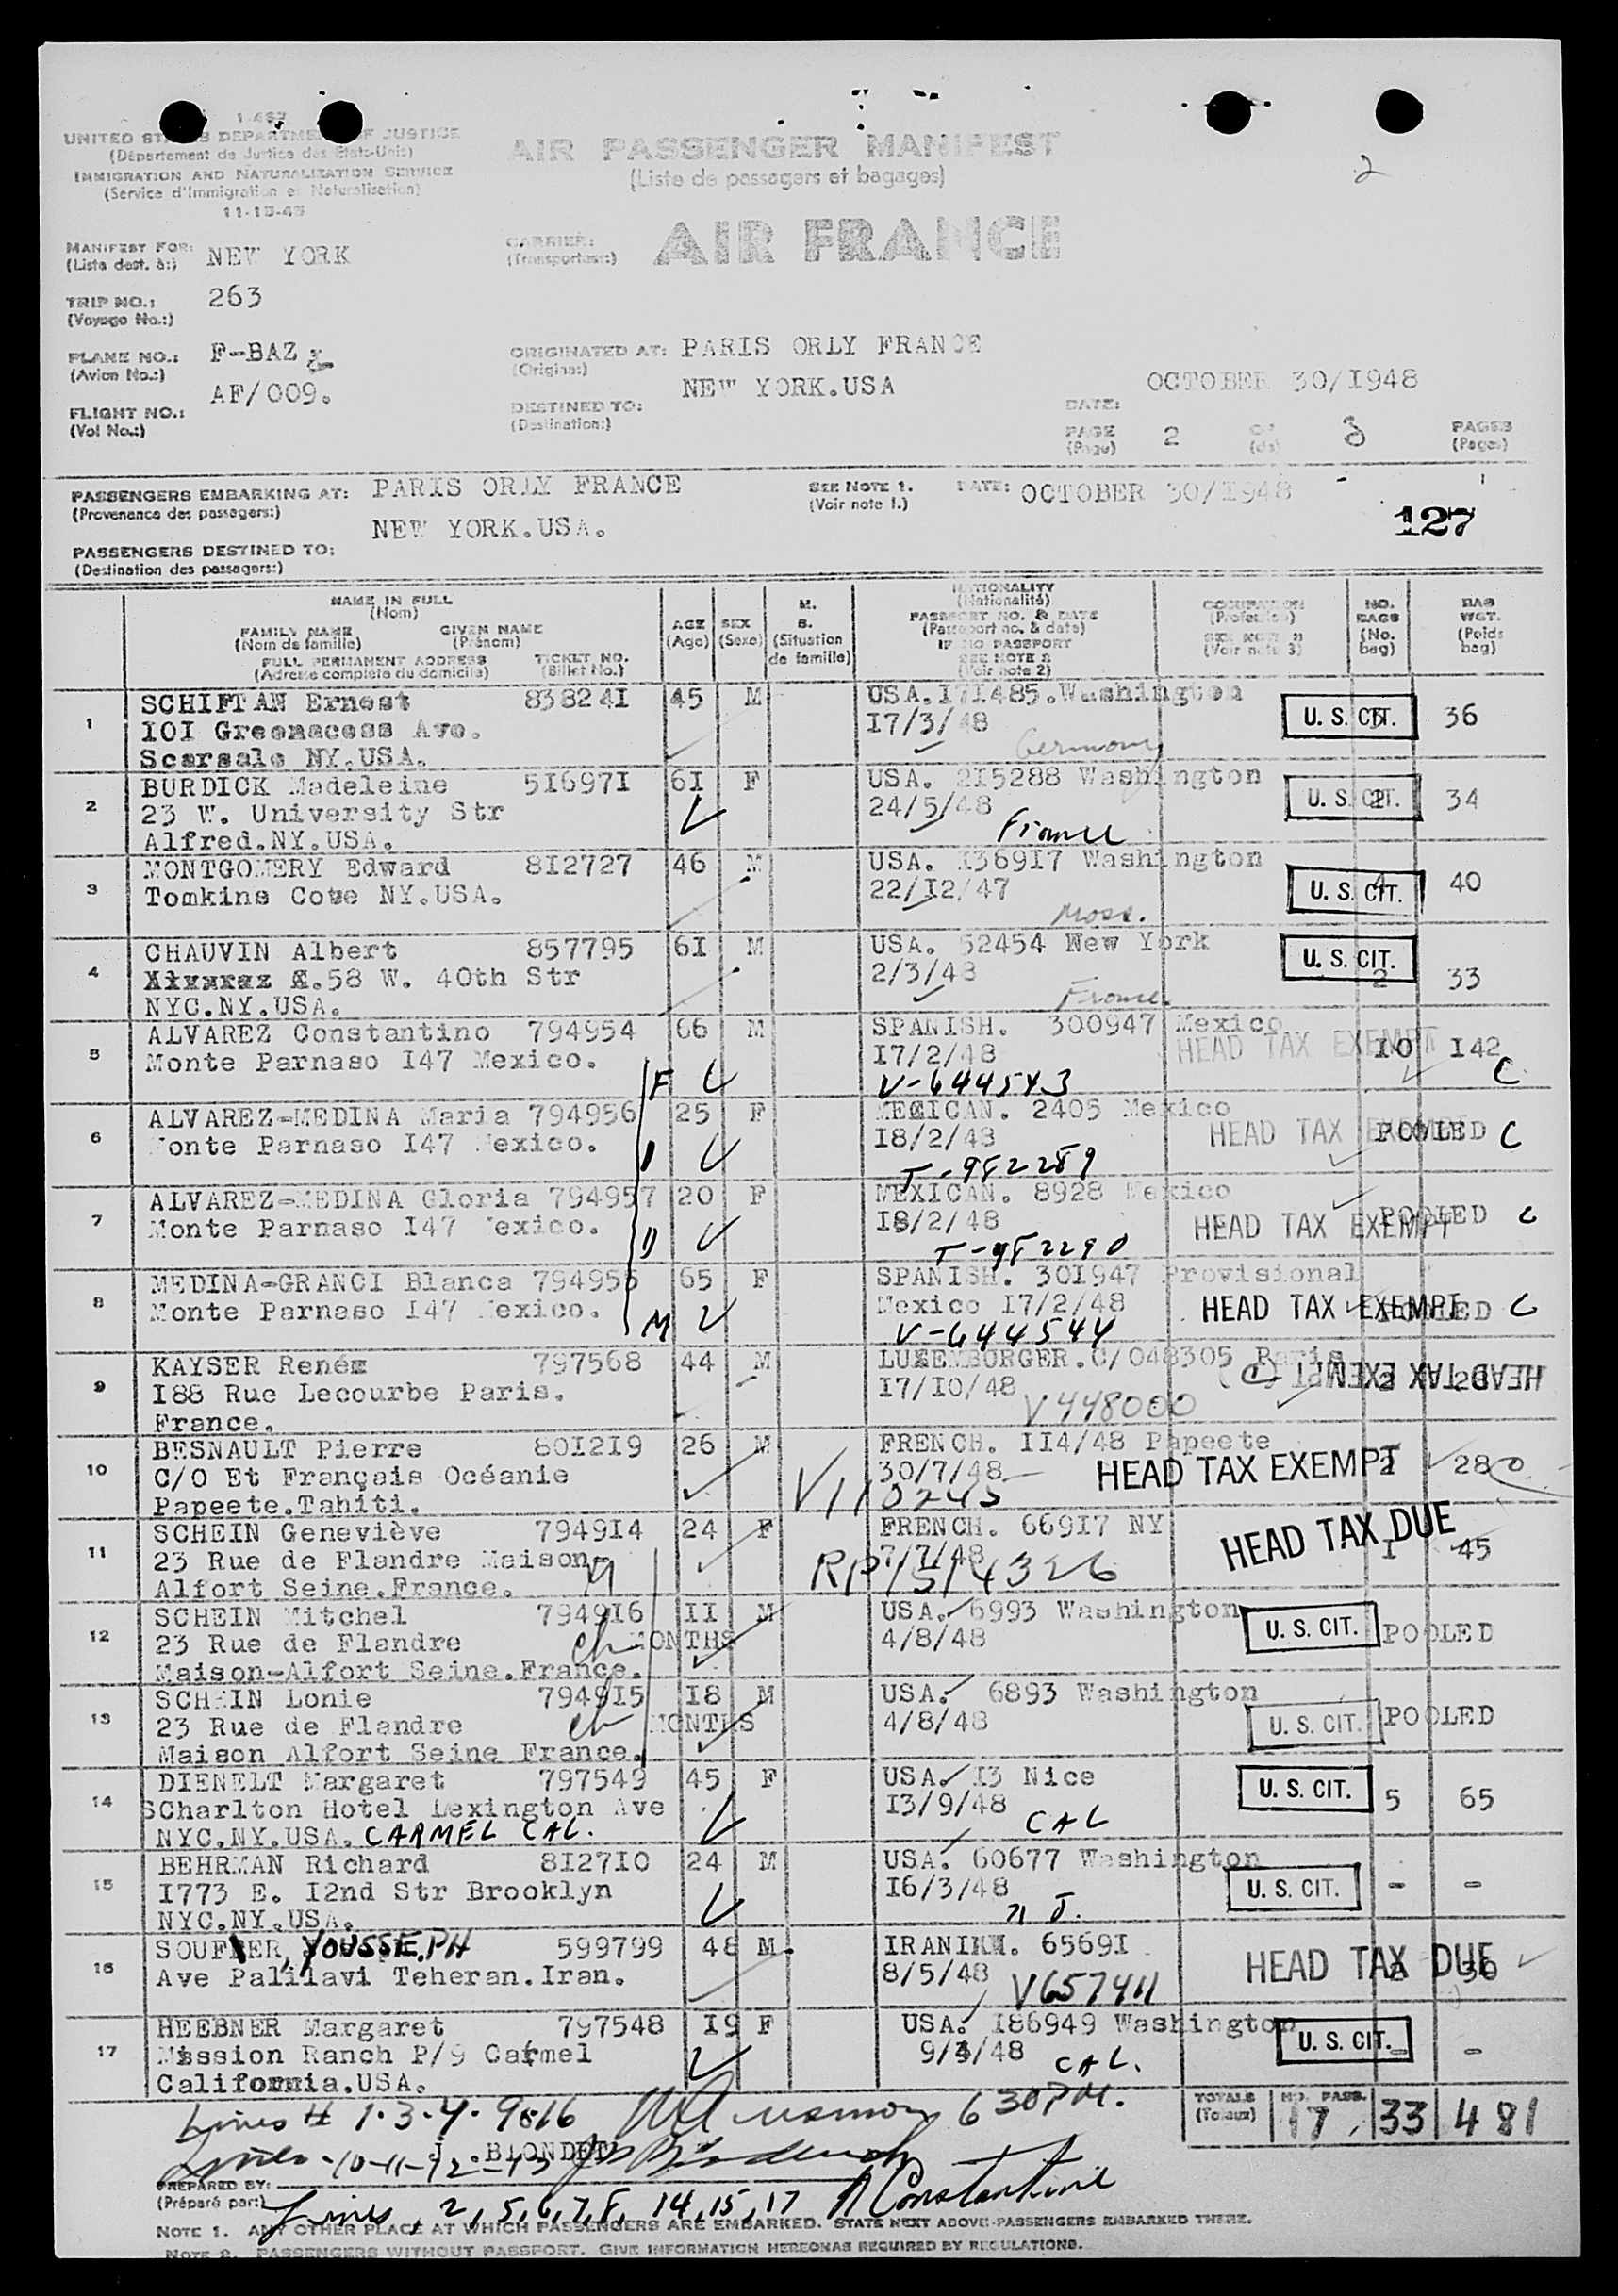 2
1-467
UNITED STATES DEPARTMENT OF JUSTICE
(Département de Justice des Etats-Unis)
IMMIGRATION AND NATURALIZATION SERVICE
(Service d'Immigration et Naturalisation)
11-15-45
AIR PASSENGER MANIFEST
(Liste de passagers et bagages)
MANIFEST FOR: NEW YORK
(Liste dest. à:)
CARRIER: AIR FRANCE
(Transporteur:)
TRIP NO.: 263
(Voyage No.:)
PLANE NO.: F-BAZ
(Avion No.:)
ORIGINATED AT: PARIS ORLY FRANCE
(Origine:)
AF/009.
FLIGHT NO.:
(Vol No.:)
NEW YORK.USA
DESTINED TO:
(Destination:)
OCTOBER 30/I948
DATE:
PAGE 2 OF 3 PAGES
(Page) (de) (Pages)
PASSENGERS EMBARKING AT: PARIS ORLY FRANCE SEE NOTE 1. DATE: OCTOBER 30/I948
(Provenance des passagers:) (Voir note 1.)
127
NEW YORK.USA.
PASSENGERS DESTINED TO:
(Destination des passagers:)
NAME IN FULL
(Nom)
FAMILY NAME GIVEN NAME
(Nom de famille) (Prénom)
FULL PERMANENT ADDRESS TICKET NO.
(Adresse complète du domicile) (Billet No.)
AGE
(Age)
SEX
(Sexe)
M.
S.
(Situation
de famille)
NATIONALITY
(Nationalité)
PASSPORT NO. & DATE
(Passeport no. & date)
IF NO PASSPORT
SEE NOTE 2
(Voir note 2)
OCCUPATION
(Profession)
SEE NOTE 3
(Voir note 3)
NO.
BAGS
(No.
bag)
BAG
WGT.
(Poids
bag)
1 SCHIFTAN Ernest 838241 45 M USA.I7I485.Washington U. S. CIT. 36
IOI Greenacess Ave. I7/3/48
Scarsale NY.USA. Germany
2 BURDICK Madeleine 5I697I 6I F USA. 2I5288 Washington U. S. CIT. 2 34
23 W. University Str 24/5/48
Alfred.NY.USA. France
3 MONTGOMERY Edward 8I2727 46 M USA. I369I7 Washington U. S. CIT. 4 40
Tomkins Cove NY.USA. 22/I2/47
Mass.
4 CHAUVIN Albert 857795 6I M USA. 52454 New York U. S. CIT. 2 33
58 W. 40th Str 2/3/48
NYC.NY.USA. France
5 ALVAREZ Constantino 794954 66 M SPANISH. 300947 Mexico HEAD TAX EXEMPT IO I42 C
Monte Parnaso I47 Mexico. I7/2/48
F V-644543
6 ALVAREZ-MEDINA Maria 794956 25 F MEXICAN. 2405 Mexico HEAD TAX EXEMPT POOLED C
Monte Parnaso I47 Mexico. I8/2/48
D T-982289
7 ALVAREZ-MEDINA Gloria 794957 20 F MEXICAN. 8928 Mexico HEAD TAX EXEMPT POOLED C
Monte Parnaso I47 Mexico. I8/2/48
D T-982290
8 MEDINA-GRANCI Blanca 794955 65 F SPANISH. 30I947 Provisional HEAD TAX EXEMPT POOLED C
Monte Parnaso I47 Mexico. Mexico I7/2/48
M V-644544
9 KAYSER René 797568 44 M LUXEMBURGER.C/048305 Paris HEAD TAX EXEMPT 2 28
I88 Rue Lecourbe Paris. I7/IO/48
France. V448000
10 BESNAULT Pierre 80I2I9 26 M FRENCH. II4/48 Papeete HEAD TAX EXEMPT 28
C/O Et Français Océanie 30/7/48
Papeete.Tahiti. V110245
11 SCHEIN Geneviève 7949I4 24 F FRENCH. 669I7 NY HEAD TAX DUE I 45
23 Rue de Flandre Maison- 7/7/48
Alfort Seine.France. RP1514326
12 SCHEIN Mitchel 7949I6 II M USA. 6993 Washington U. S. CIT. POOLED
23 Rue de Flandre ch MONTHS 4/8/48
Maison-Alfort Seine.France.
13 SCHEIN Lonie 7949I5 I8 M USA. 6893 Washington U. S. CIT. POOLED
23 Rue de Flandre ch MONTHS 4/8/48
Maison Alfort Seine France.
14 DIENELT Margaret 797549 45 F USA. I3 Nice U. S. CIT. 5 65
SCharlton Hotel Lexington Ave I3/9/48
NYC.NY.USA. CARMEL CAL. CAL
15 BEHRMAN Richard 8I27IO 24 M USA. 60677 Washington U. S. CIT. - -
I773 E. I2nd Str Brooklyn I6/3/48
NYC.NY.USA. N J.
16 SOUFER, YOUSSEPH 599799 48 M. IRANIEN. 6569I HEAD TAX DUE 2 30
Ave Palilavi Teheran.Iran. 8/5/48 V657411
17 HEEBNER Margaret 797548 I9 F USA. I86949 Washington U. S. CIT. - -
Mission Ranch P/9 Carmel 9/4/48 CAL.
California.USA.
TOTALS NO. PASS. 17 33 481
(Totaux)
Lines # 1.3.4.9&16 6 30PM.
Lines -10-11-12-13 J. BLONDET
PREPARED BY:
(Préparé par:)
Lines, 2,5,6,7,8, 14,15,17 A Constantine
NOTE 1. ANY OTHER PLACE AT WHICH PASSENGERS ARE EMBARKED. STATE NEXT ABOVE PASSENGERS EMBARKED THERE.
NOTE 2. PASSENGERS WITHOUT PASSPORT. GIVE INFORMATION HEREON AS REQUIRED BY REGULATIONS.